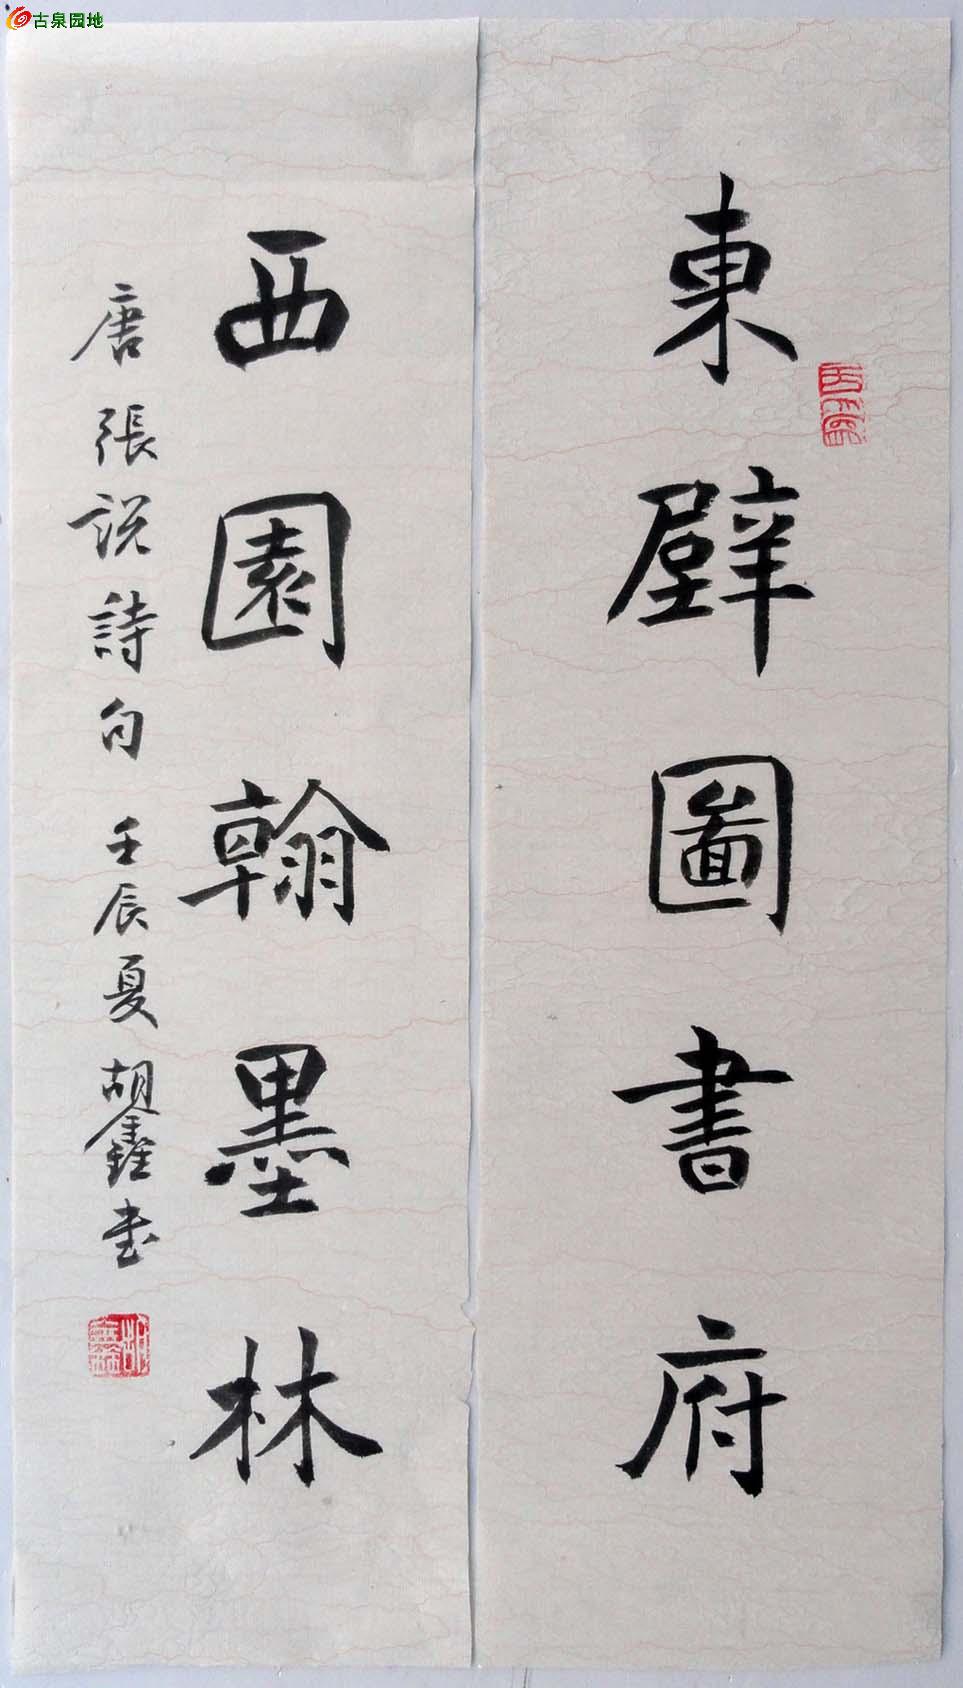 古泉园地
東壁圖書府
西園翰墨林
唐張說詩句 壬辰夏 胡鑫书